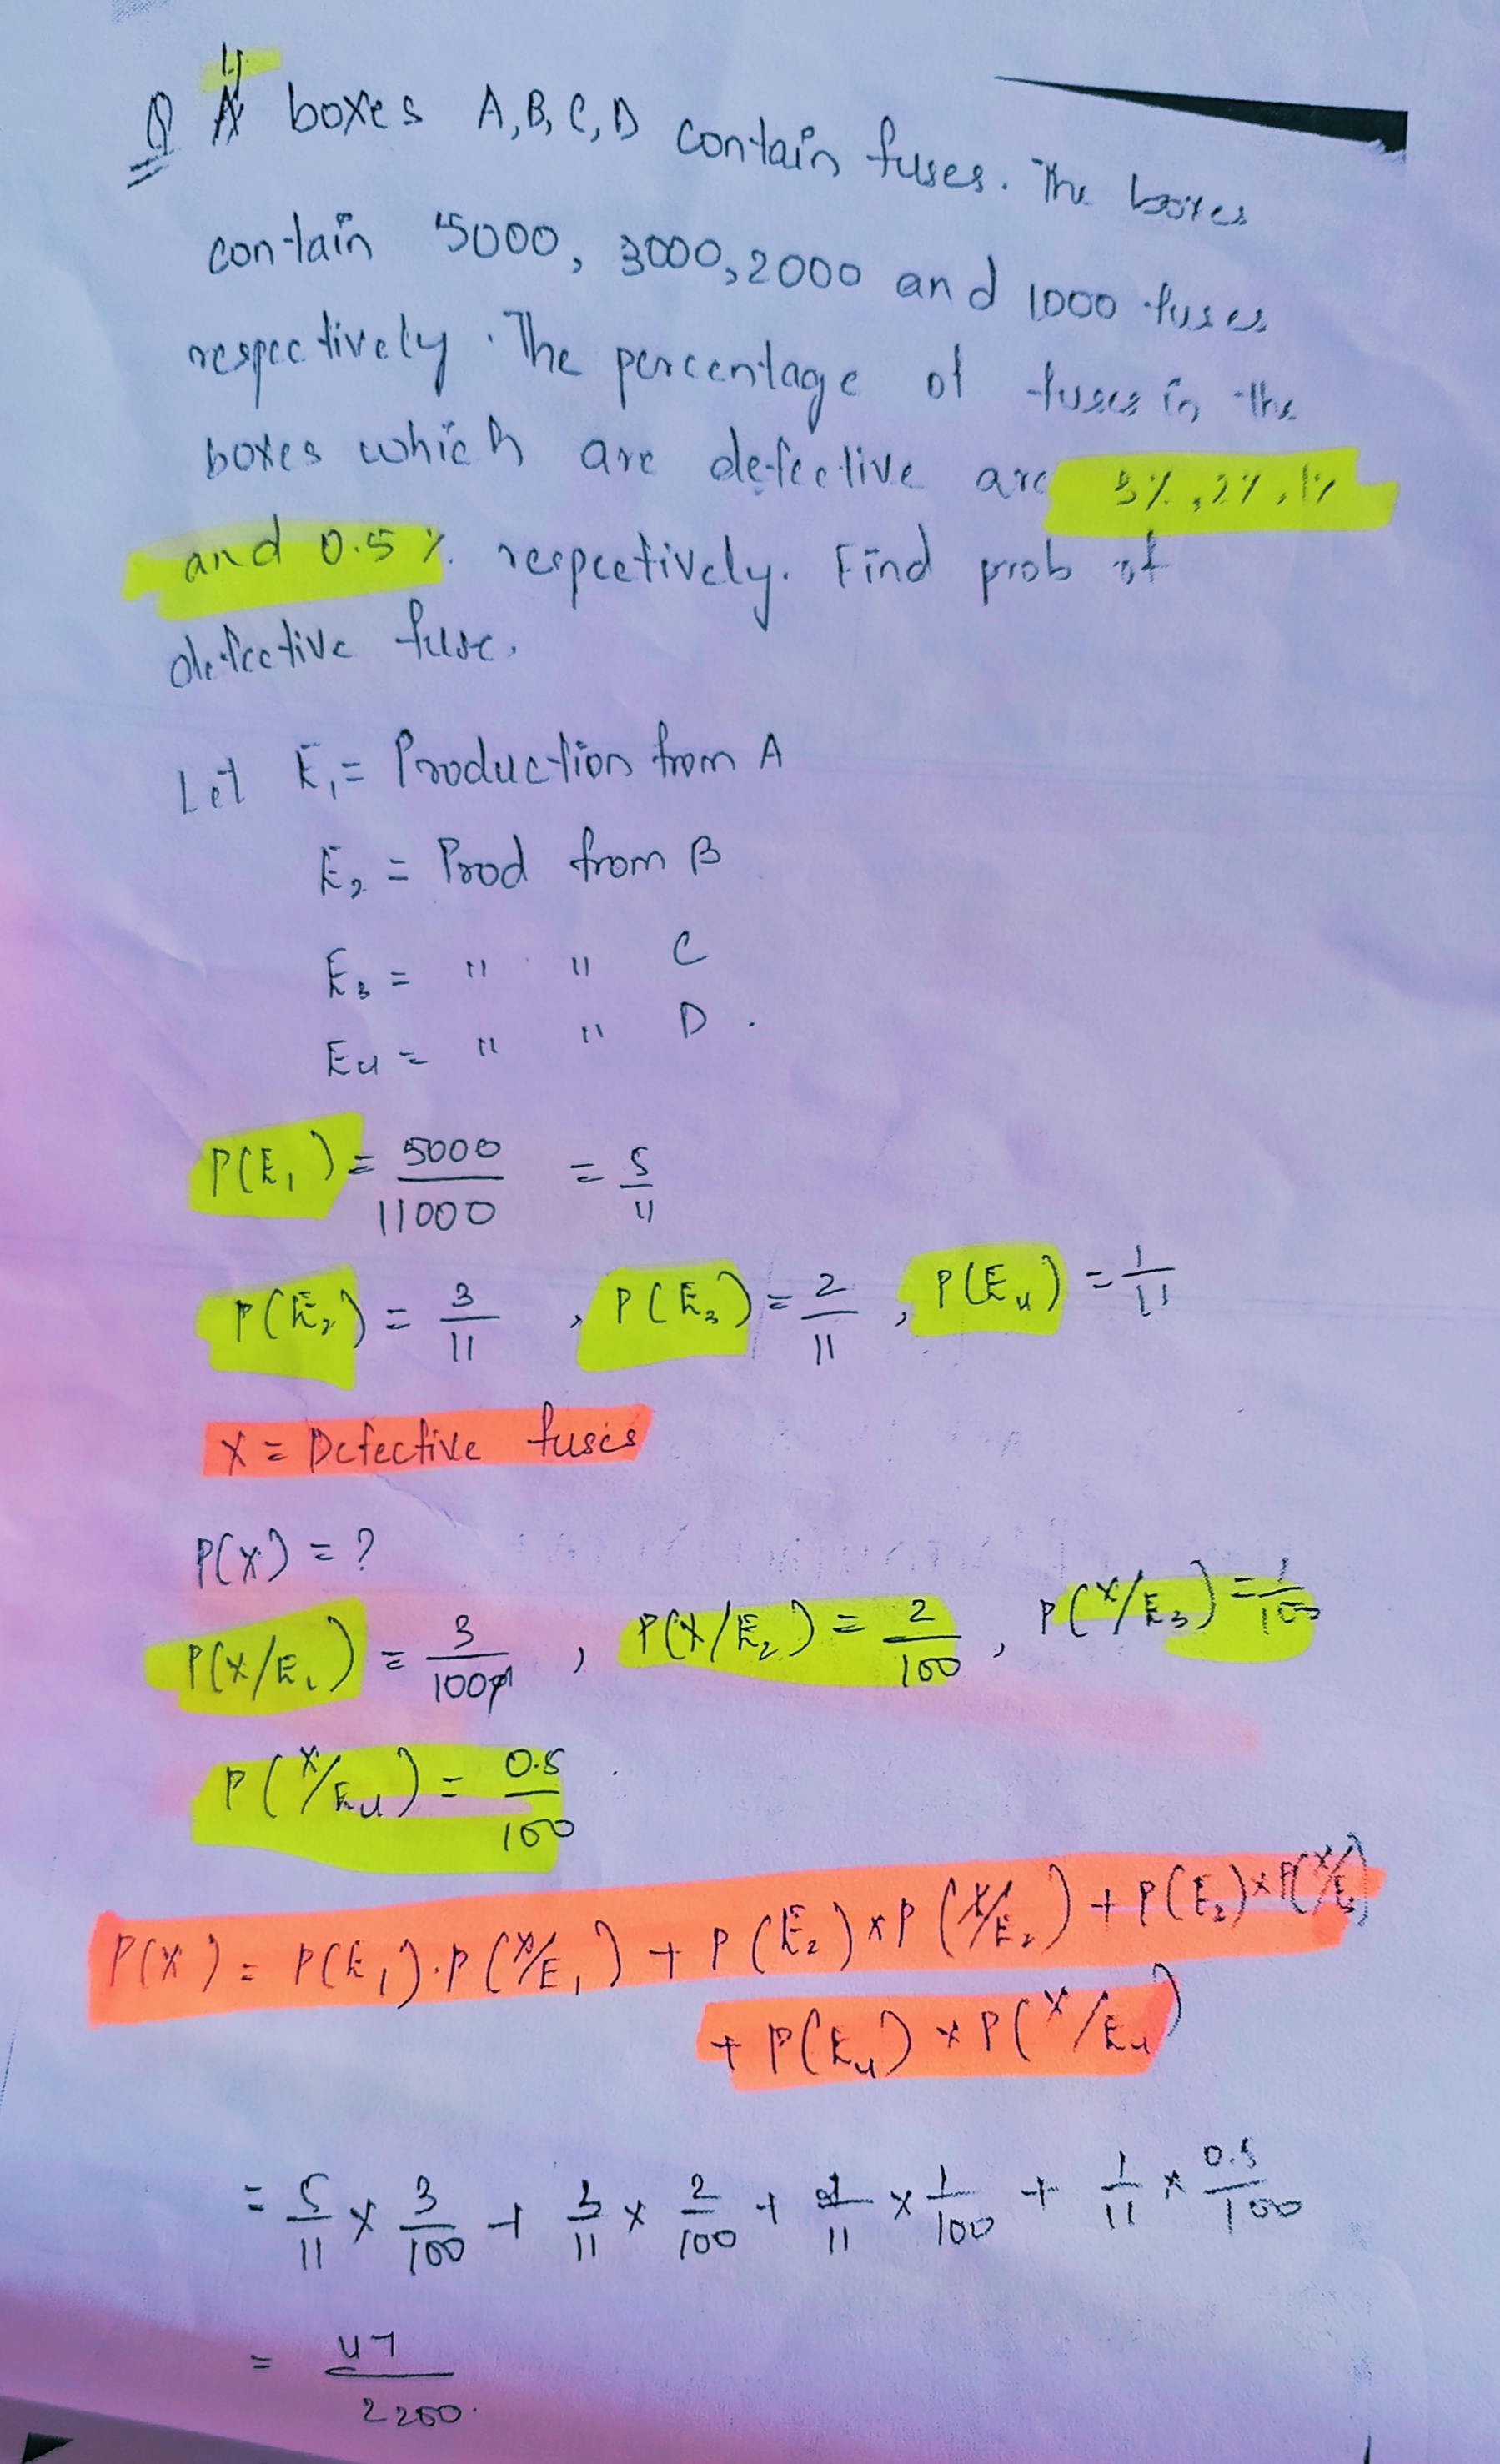 Q 4 boxes A, B, C, D contain fuses. The boxes
contain 5000, 3000, 2000 and 1000 fuses
respectively. The percentage of fuses in the
boxes which are defective are 3%, 2%, 1%
and 0.5% respectively. Find prob of
defective fuse.
Let E₁ = Production from A
E₂ = Prod from B
E₃ = " " C
E₄ = " " D.
P(E₁) = 5000/11000 = 5/11
P(E₂) = 3/11, P(E₃) = 2/11, P(E₄) = 1/11
X = Defective fuses
P(X) = ?
P(X/E₁) = 3/100, P(X/E₂) = 2/100, P(X/E₃) = 1/100
P(X/E₄) = 0.5/100
P(X) = P(E₁).P(X/E₁) + P(E₂) × P(X/E₂) + P(E₃) × P(X/E₃)
+ P(E₄) × P(X/E₄)
= 5/11 × 3/100 + 3/11 × 2/100 + 2/11 × 1/100 + 1/11 × 0.5/100
= 47/2200.